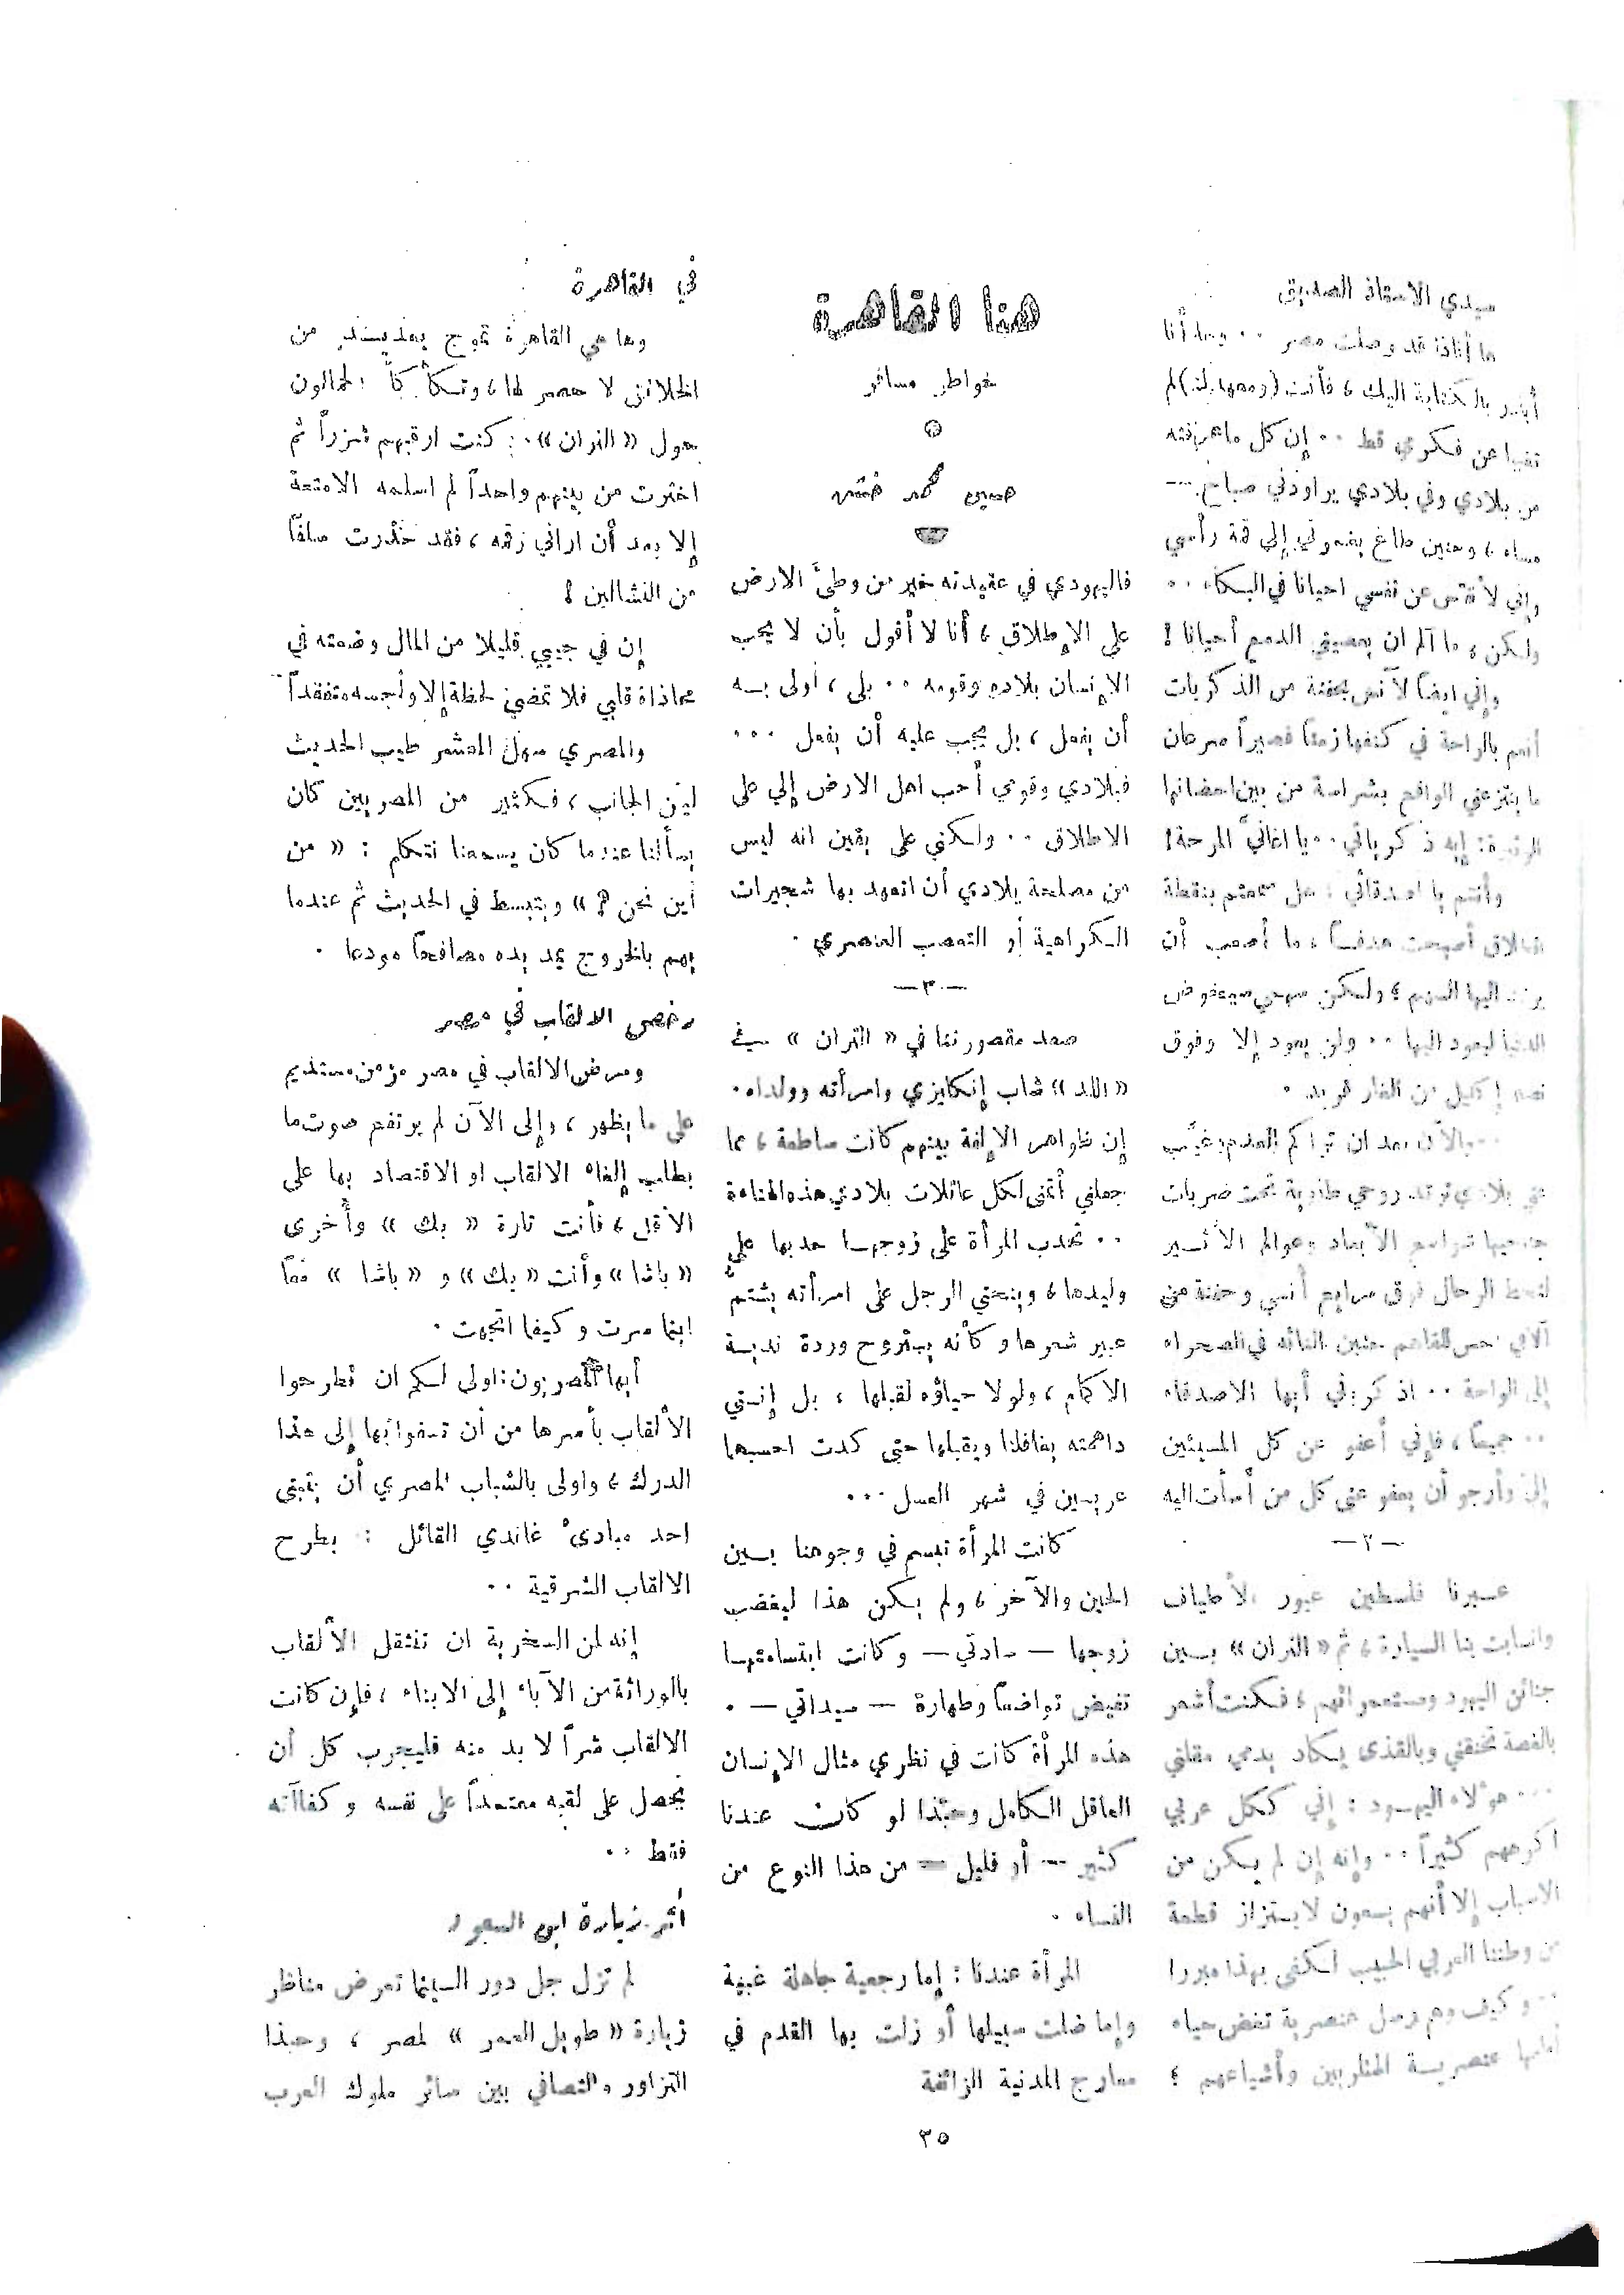 هنا القاهرة
خواطر مسافر
حسين محمد خشه
سيدي الاستاذ الصديق
ها أناذا قد وصلت مصر ٠٠ وها أنا
بالكتابة اليك ، فأنت ( ) لم
عن فكري قط ٠٠ إن كل ما عرفته
من بلادي وفي بلادي يراودني صباح
مساء ، وحنين طاغ إلى قمة رأسي
وإني لأنفس عن نفسي احيانا في البكاء ٠٠
ولكن ، ما آلم ان يعصيني الدمع أحيانا !
وإني ايضاً لآنس بحفنة من الذكريات
أنعم بالراحة في كنفها زمناً قصيراً سرعان
ما ينتزعني الواقع بشراسة من بين احضانها
إيه ذكرياتي ٠٠ يا اغانيّ المرحة !
وأنتم يا اصدقائي ، هل سمعتم بنقطة
انطلاق أصبحت هدفاً ، ما أصعب أن
يرتد اليها السهم ؛ ولكن سهمي سيخوض
الدنيا ليعود اليها ٠٠ ولن يعود إلا وفوق
إكليل من الغار فريد ٠
والآن بعد ان تراكم
بلادي ترتد روحي تحت ضربات
الأبعاد وعوالم الأثير
لتحط الرحال فوق مرابع أنسي وحفنة من
حنين التائه في الصحراء
إلى الواحة ٠٠ اذكروني أيها الاصدقاء
٠٠ جميعاً ، فإني أعفو عن كل المسيئين
إليّ وأرجو أن يعفو عني كل من أسأت اليه
— ٢ —
عبرنا فلسطين عبور الأطياف
وانسابت بنا السيارة ، ثم « التران » بين
جنائن اليهود ومستعمراتهم ، فكنت أشعر
بالغصة تخنقني وبالقذى يكاد يدمي مقلتي
٠٠٠ هؤلاء اليهود : إني ككل عربي
اكرههم كثيراً ٠٠ وإنه إن لم يكن من
الاسباب إلا أنهم يسعون لابتزاز قطعة
من وطننا العربي الحبيب لكفى بهذا مبررا
٠٠ وكيف وهم رسل عنصرية تغض حياء
أمامها عنصرية الهتلريين وأشياعهم ؛
فاليهودي في عقيدته خير من وطئ الارض
على الإطلاق ، أنا لا أقول بأن لا يحب
الإنسان بلاده وقومه ٠٠ بلى ، أولى به
أن يفعل ، بل يجب عليه أن يفعل ٠٠٠
فبلادي وقومي أحب اهل الارض إلي على
الاطلاق ٠٠ ولكني على يقين انه ليس
من مصلحة بلادي أن اتعهد بها شجيرات
الكراهية أو التعصب العنصري ٠
— ٣ —
صعد مقصورتنا في « التران » في
« اللد » شاب إنكليزي وامرأته وولداه ٠
إن ظواهر الإلفة بينهم كانت ساطعة ، مما
جعلني أتمنى لكل عائلات بلادي هذه الهناءة
٠٠ تحدب المرأة على زوجها حدبها على
وليدها ، وينحني الرجل على امرأته يشتم
عبير شعرها وكأنه يستروح وردة ندية
الاكمام ، ولولا حياؤه لقبلها ، بل إنني
داهمته يغافلنا ويقبلها حتى كدت احسبهما
عريسين في شهر العسل ٠٠٠
كانت المرأة تبسم في وجوهنا بين
الحين والآخر ، ولم يكن هذا ليغضب
زوجها — سادتي — وكانت ابتسامتها
تفيض تواضعاً وطهارة — سيداتي — ٠
هذه المرأة كانت في نظري مثال الإنسان
العاقل الكامل وحبّذا لو كان عندنا
كثير — أو قليل — من هذا النوع من
النساء ٠
المرأة عندنا : إما رجعية جاهلة غبية
وإما ضلت سبيلها أو زلت بها القدم في
معارج المدنية الزائفة
في القاهرة
وها هي القاهرة تموج من
الخلائق لا حصر لها ، وتكأكأ الحمالون
حول « التران » ٠ : كنت ارقبهم شزراً ثم
اخترت من بينهم واحداً لم اسلمه الامتعة
إلا بعد أن اراني رقمه ، فقد حُذرت سلفاً
من النشالين !
إن في جيبي قليلا من المال وضعته في
محاذاة قلبي فلا تمضي لحظة إلا وأجسه متفقداً
والمصري سهل المعشر طيب الحديث
ليّن الجانب ، فكثير من المصريين كان
يسألنا عندما كان يسمعنا نتكلم : « من
أين نحن ؟ » ويتبسط في الحديث ثم عندما
يهم بالخروج يمد يده مصافحاً مودعا ٠
رخص الالقاب في مصر
ومرض الالقاب في مصر مزمن مستديم
على ما يظهر ، وإلى الآن لم يرتفع صوت ما
يطلب إلغاء الالقاب او الاقتصاد بها على
الأقل ، فأنت تارة « بك » وأخرى
« باشا » وأنت « بك » و « باشا » معاً
اينما سرت وكيفما اتجهت ٠
أيها المصريون : اولى لكم ان تطرحوا
الألقاب بأسرها من أن تسفوا بها إلى هذا
الدرك ، واولى بالشباب المصري أن يتبنى
احد مبادئ غاندي القائل : بطرح
الالقاب الشرقية ٠٠
إنه لمن السخرية ان تنتقل الألقاب
بالوراثة من الآباء إلى الابناء ، فإن كانت
الالقاب شراً لا بد منه فليجرب كل أن
يحصل على لقبه معتمداً على نفسه وكفاآته
فقط ٠٠
أثر زيارة ابن السعود
لم تزل جل دور السينما تعرض مناظر
زيارة « طويل العمر » لمصر ، وحبذا
التزاور والتصافي بين سائر ملوك العرب
٣٥